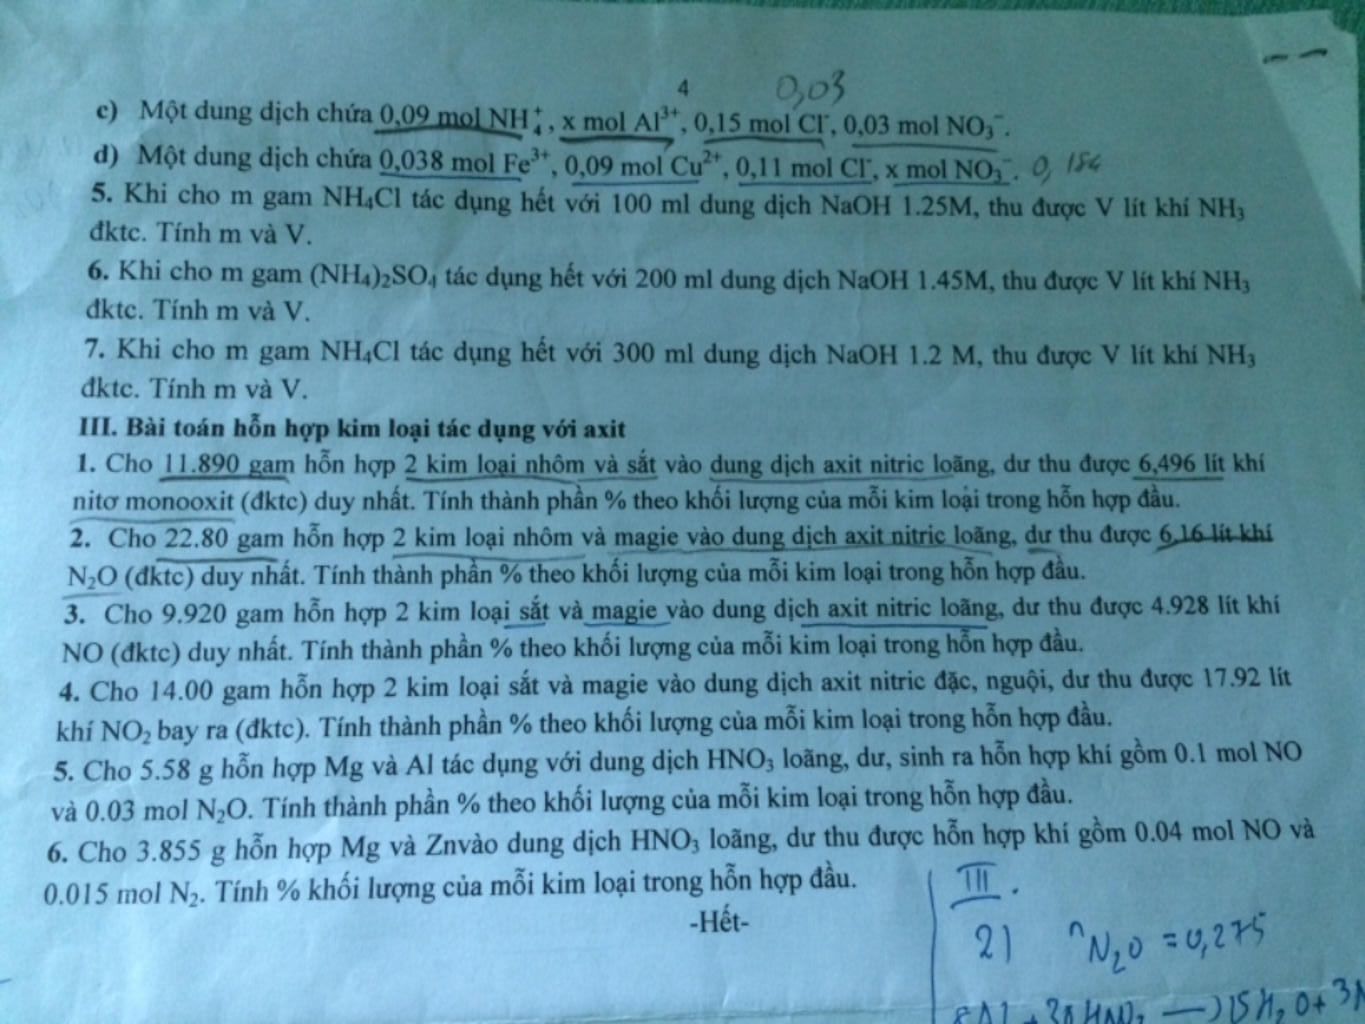 4 0,03
c) Một dung dịch chứa 0,09 mol NH₄⁺, x mol Al³⁺, 0,15 mol Cl⁻, 0,03 mol NO₃⁻.
d) Một dung dịch chứa 0,038 mol Fe³⁺, 0,09 mol Cu²⁺, 0,11 mol Cl⁻, x mol NO₃⁻. 0,184
5. Khi cho m gam NH₄Cl tác dụng hết với 100 ml dung dịch NaOH 1.25M, thu được V lít khí NH₃
đktc. Tính m và V.
6. Khi cho m gam (NH₄)₂SO₄ tác dụng hết với 200 ml dung dịch NaOH 1.45M, thu được V lít khí NH₃
đktc. Tính m và V.
7. Khi cho m gam NH₄Cl tác dụng hết với 300 ml dung dịch NaOH 1.2 M, thu được V lít khí NH₃
đktc. Tính m và V.
III. Bài toán hỗn hợp kim loại tác dụng với axit
1. Cho 11.890 gam hỗn hợp 2 kim loại nhôm và sắt vào dung dịch axit nitric loãng, dư thu được 6,496 lít khí
nitơ monooxit (đktc) duy nhất. Tính thành phần % theo khối lượng của mỗi kim loại trong hỗn hợp đầu.
2. Cho 22.80 gam hỗn hợp 2 kim loại nhôm và magie vào dung dịch axit nitric loãng, dư thu được 6,16 lít khí
N₂O (đktc) duy nhất. Tính thành phần % theo khối lượng của mỗi kim loại trong hỗn hợp đầu.
3. Cho 9.920 gam hỗn hợp 2 kim loại sắt và magie vào dung dịch axit nitric loãng, dư thu được 4.928 lít khí
NO (đktc) duy nhất. Tính thành phần % theo khối lượng của mỗi kim loại trong hỗn hợp đầu.
4. Cho 14.00 gam hỗn hợp 2 kim loại sắt và magie vào dung dịch axit nitric đặc, nguội, dư thu được 17.92 lít
khí NO₂ bay ra (đktc). Tính thành phần % theo khối lượng của mỗi kim loại trong hỗn hợp đầu.
5. Cho 5.58 g hỗn hợp Mg và Al tác dụng với dung dịch HNO₃ loãng, dư, sinh ra hỗn hợp khí gồm 0.1 mol NO
và 0.03 mol N₂O. Tính thành phần % theo khối lượng của mỗi kim loại trong hỗn hợp đầu.
6. Cho 3.855 g hỗn hợp Mg và Znvào dung dịch HNO₃ loãng, dư thu được hỗn hợp khí gồm 0.04 mol NO và
0.015 mol N₂. Tính % khối lượng của mỗi kim loại trong hỗn hợp đầu.
-Hết-
III.
2) nN₂O = 0,275